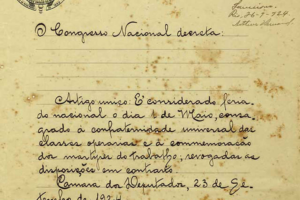 Sancciono.
Rio, 26-9-924
Arthur Bernardes
O Congresso Nacional decreta:
Artigo unico: É considerado feria-
do nacional o dia 1 de Maio, consa-
grado á confraternidade universal das
classes operarias e á commemoração
dos martyres do trabalho, revogadas as
disposições em contrario.
Camara dos Deputados, 23 de Se-
tembro de 1924